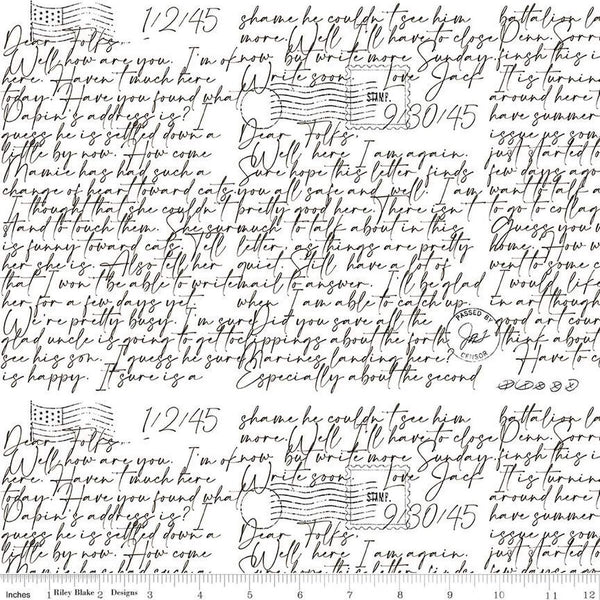 1/2/45
Dear Folks,
Well, how are you. I'm ok
here. Haven't much here
today. Have you found wha
Papin's address is? I
guess he is settled down a
little by now. How come
Mamie has had such a
change of heart toward cats.
I thought that she couldn't
stand to touch them. She sur
is funny toward cats. Tell
her she is. Also tell her
that I won't be able to write
her for a few days yet.
We're pretty busy. I'm sur
glad uncle is going to get to
see his son. I guess he sure
is happy. It sure is a
shame he couldn't see him
more. Well I'll have to close
now but write more Sunday.
Write soon, love Jack
STAMP.
9/30/45
Dear Folks,
Well, here I am again.
Sure hope this letter finds
you all safe and well. I am
pretty good here. There isn't
much to talk about in this
letter, as things are pretty
quiet. Still have a lot of
mail to answer. I'll be glad
when I am able to catch up.
Did you save all the
clippings about the forth
Marines landing here?
Especially about the second
PASSED BY
CENSOR
battalion la
Penn. Sorro
finsh this i
It is turnin
around here t
have summer
issue us som
just started to
few days ago
want to talk a
to go to collag
Guess you w
home. How w
went to some c
I would life
in art though
good art cour
think about
Have to cl
1/2/45
Dear Folks,
Well, how are you. I'm ok
here. Haven't much here
today. Have you found wha
Papin's address is? I
guess he is settled down a
little by now. How come
shame he couldn't see him
more. Well I'll have to close
now but write more Sunday.
Write soon, love Jack
STAMP.
9/30/45
Dear Folks,
Well, here I am again.
Sure hope this letter finds
battalion la
Penn. Sorro
finsh this i
It is turnin
around here t
have summer
issue us som
just started to
few days ago
Inches 1 Riley Blake 2 Designs 3 4 5 6 7 8 9 10 11 12